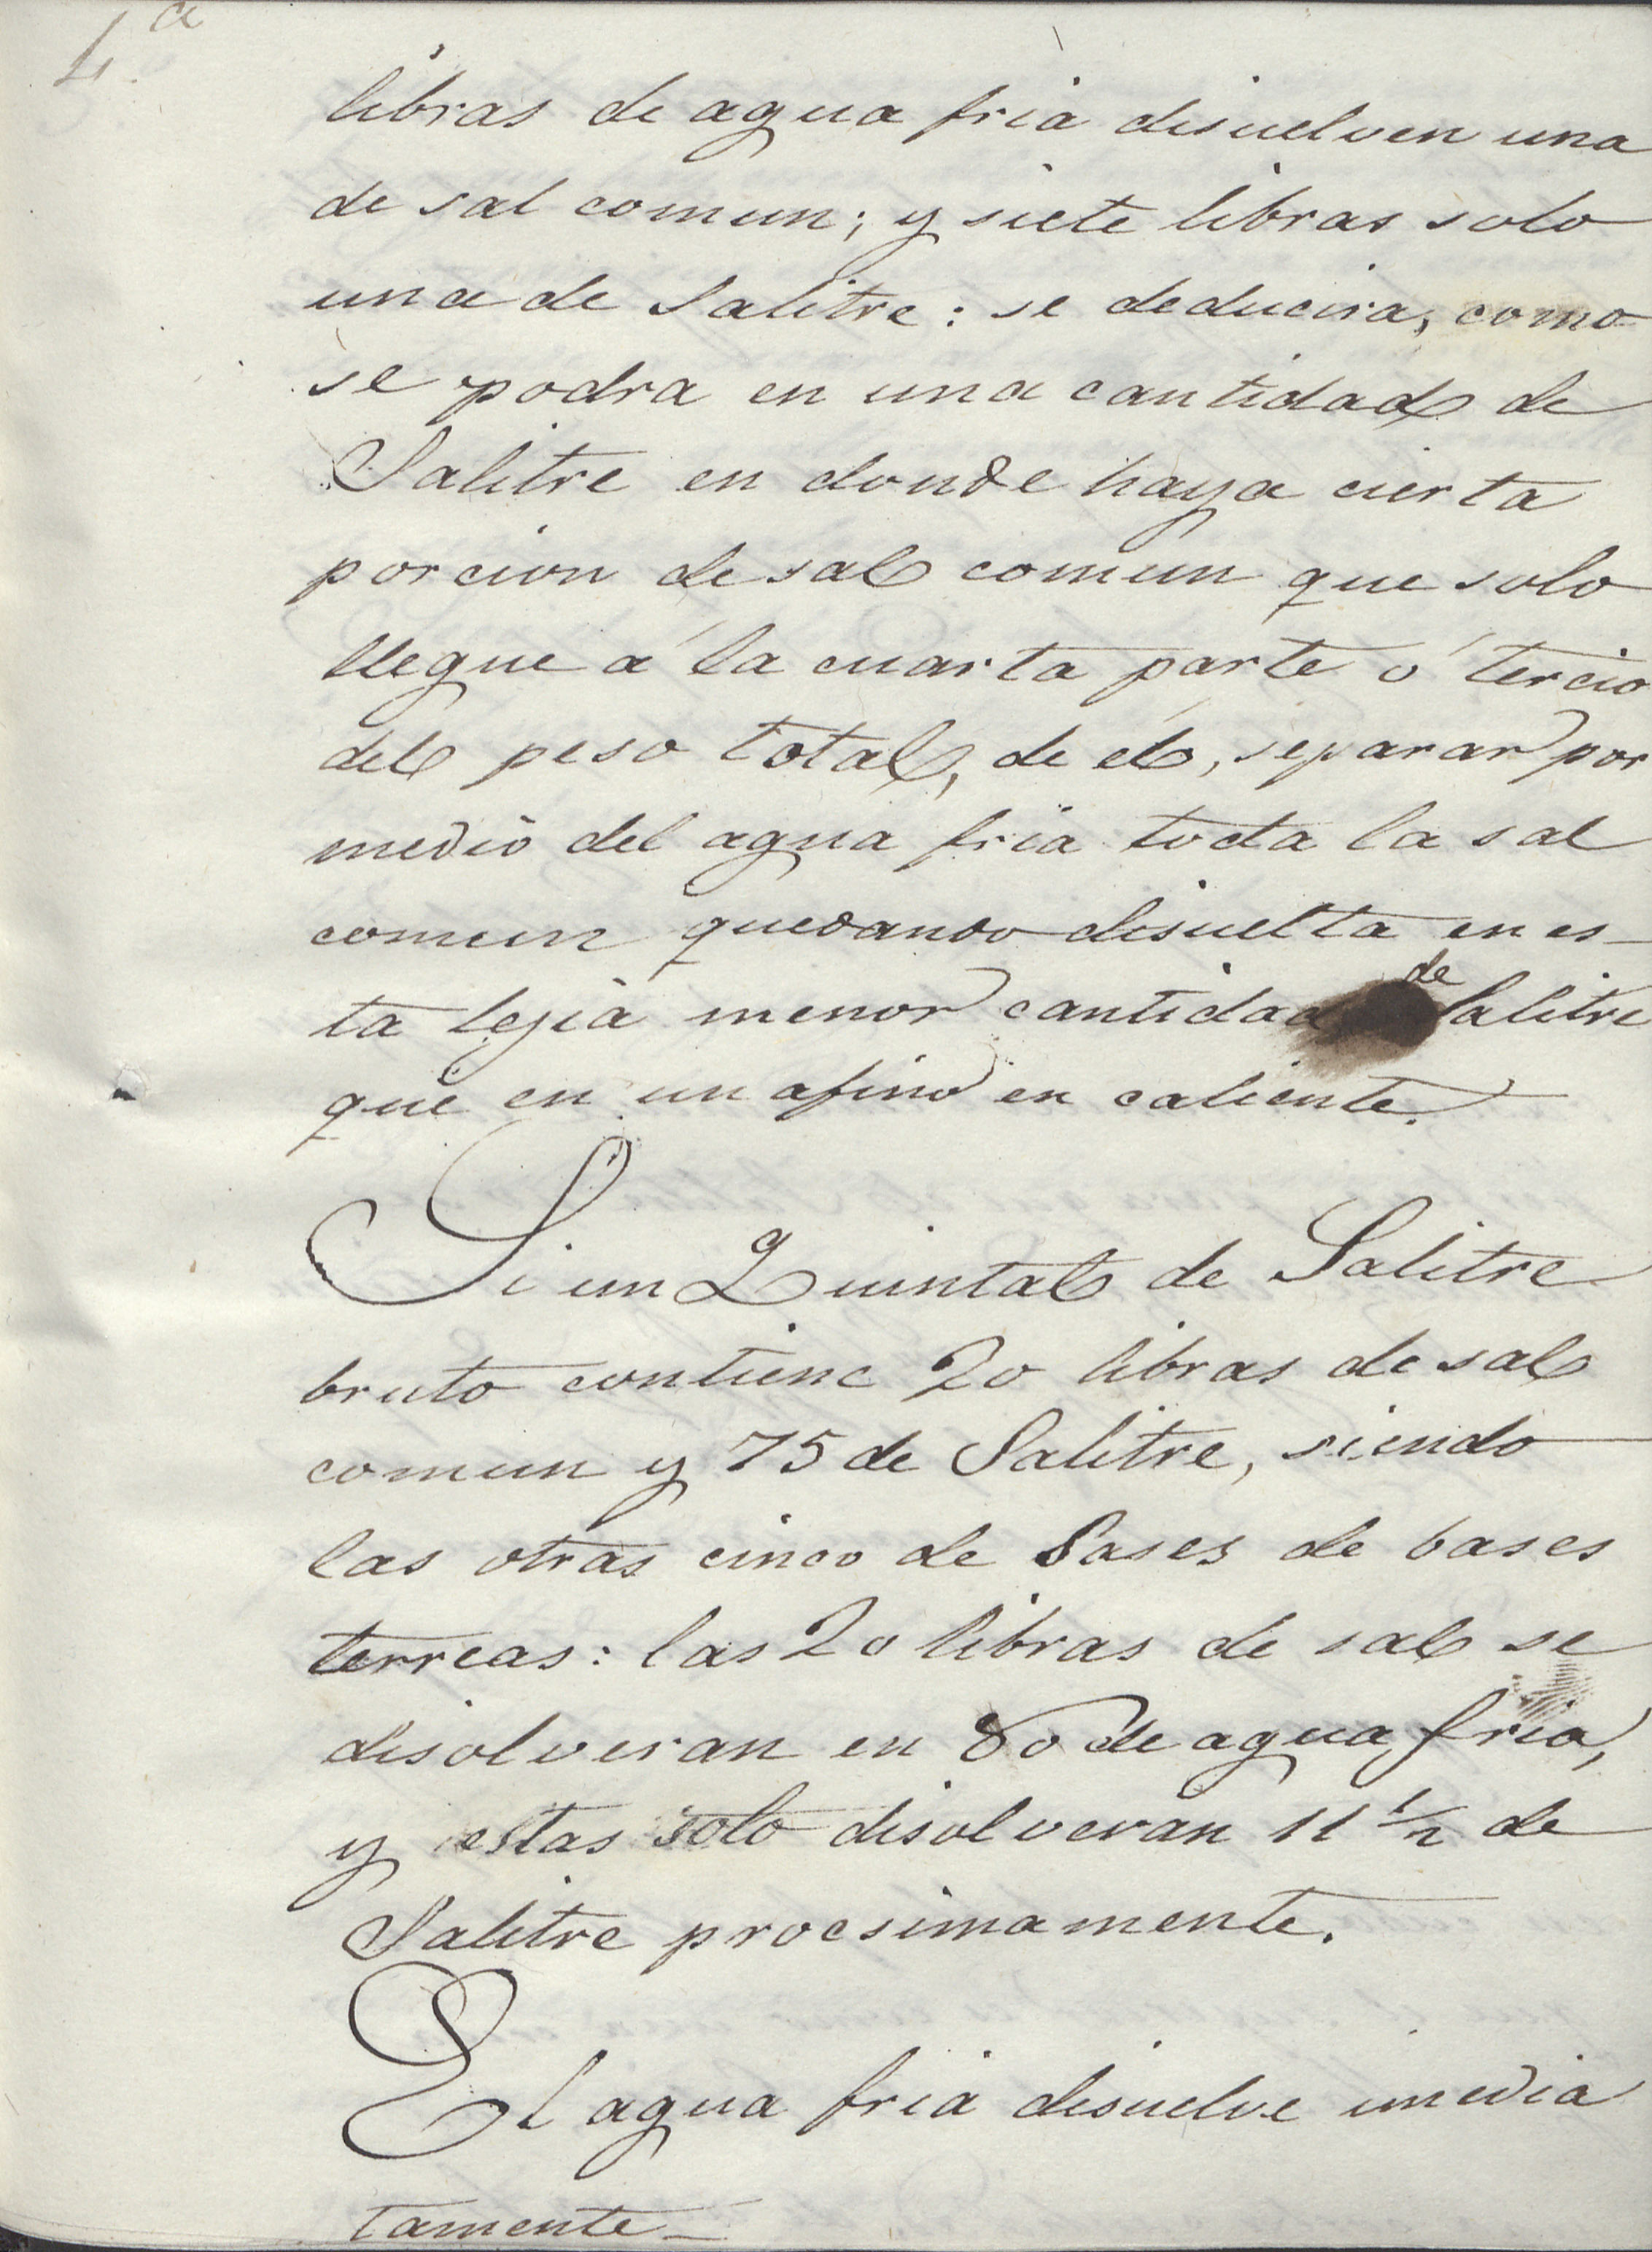 4.a
libras de agua fria disuelven una
de sal comun; y siete libras solo
una de Salitre: se deducira, como
se podra en una cantidad de
Salitre en donde haya cierta
porcion de sal comun que solo
llegue á la cuarta parte ó tercio
del peso total, de el, separar por
medio del agua fria toda la sal
comun quedando disuelta en es-
ta lejia menor cantidad de Salitre
que en un afino en caliente.
Si un Quintal de Salitre
bruto contiene 20 libras de sal
comun y 75 de Salitre, siendo
las otras cinco de Sases de bases
terreas: las 20 libras de sal se
disolveran en 80 de agua fria,
y estas solo disolveran 11 1/2 de
Salitre procsimamente.
El agua fria disuelve imedia
tamente-